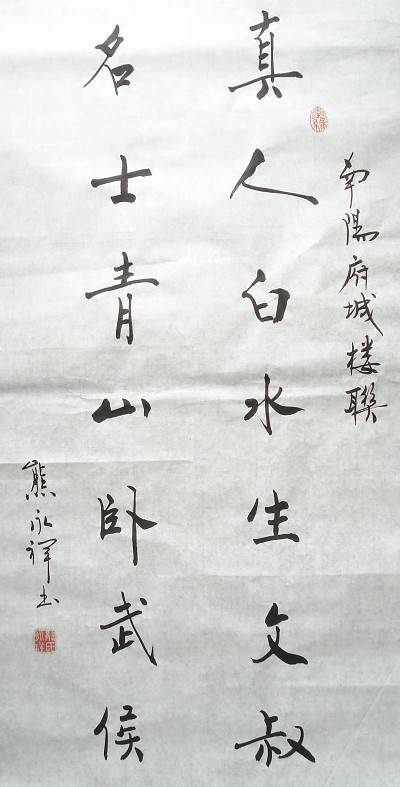 南陽府城楼聯
真人白水生文叔
名士青山卧武侯
熊永祥书